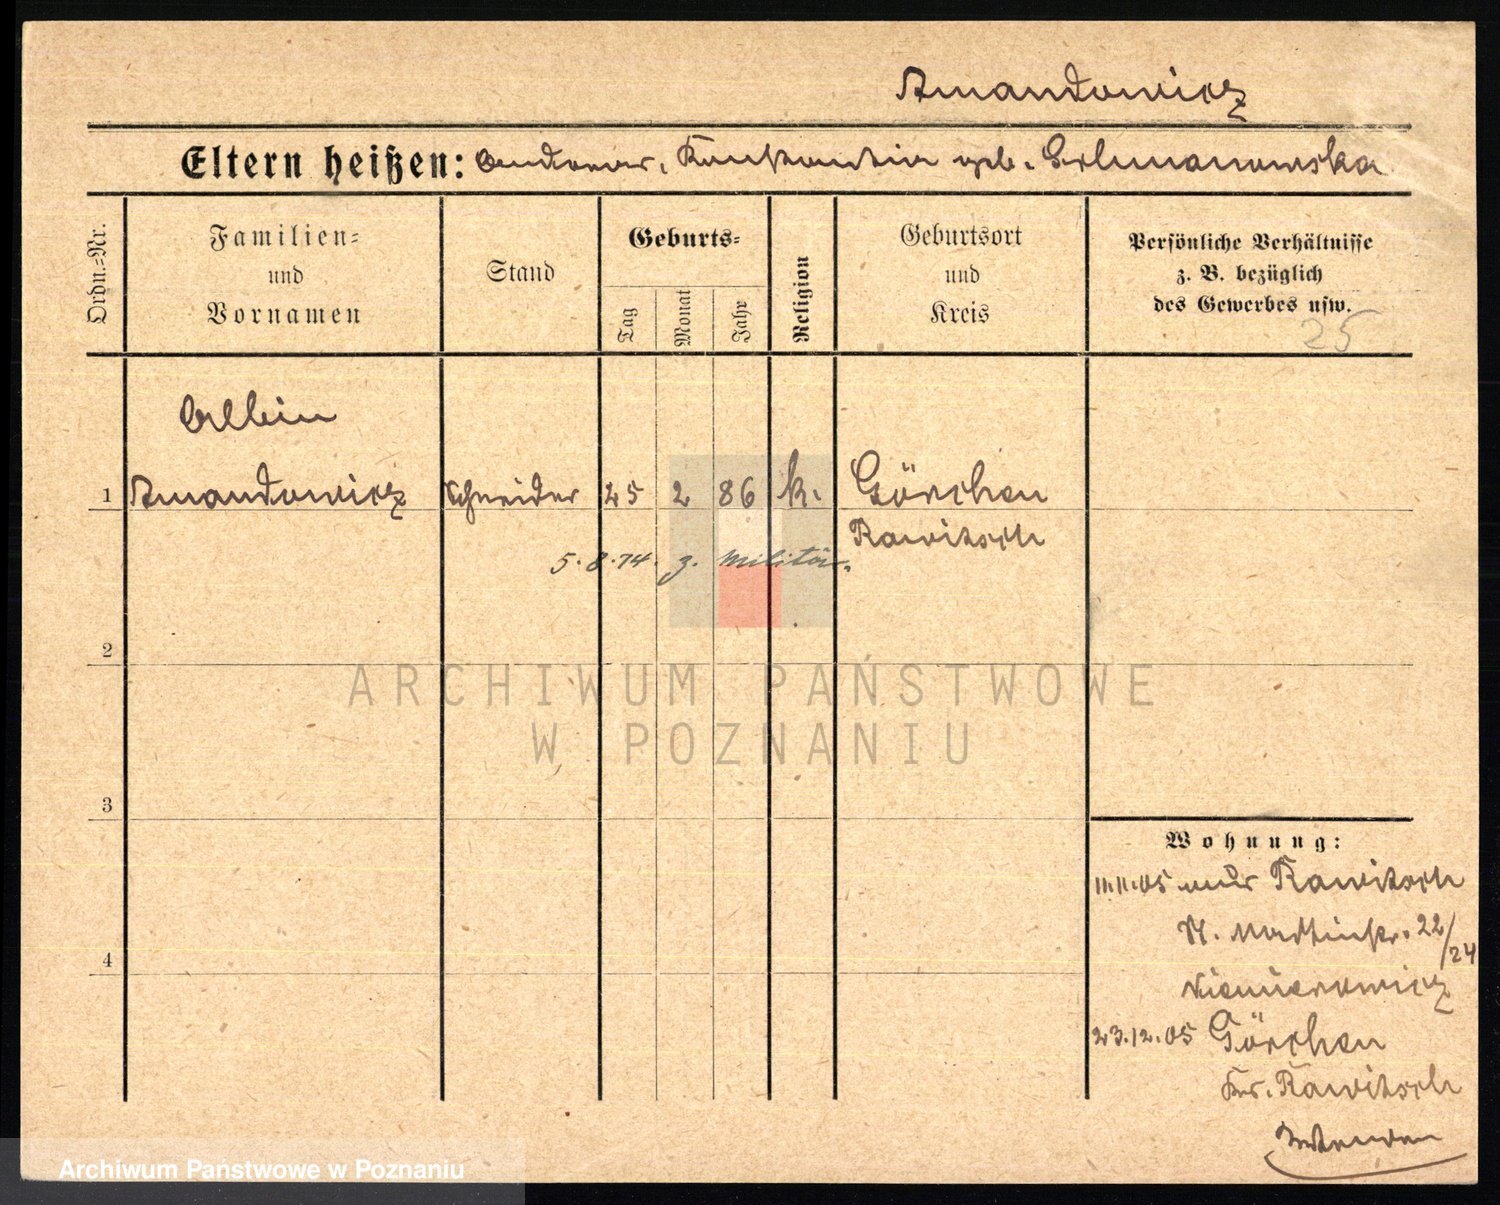 Amandowicz
Eltern heißen: Andreas, Konstantia geb.
Ordn.-Nr.
Familien- und Vornamen
Stand
Geburts-
Tag
Monat
Jahr
Religion
Geburtsort und Kreis
Persönliche Verhältnisse
z. B. bezüglich
des Gewerbes usw.
25
Albin
1 Amandowicz Schneider 25 2 86 k. Görchen
Rawitsch
5.8.14. z. Militär.
2
3
4
ARCHIWUM PAŃSTWOWE
W POZNANIU
Wohnung:
11.11.05 aus Rawitsch
St. Martinstr. 22/24
23.12.05 Görchen
Kr. Rawitsch
Archiwum Państwowe w Poznaniu